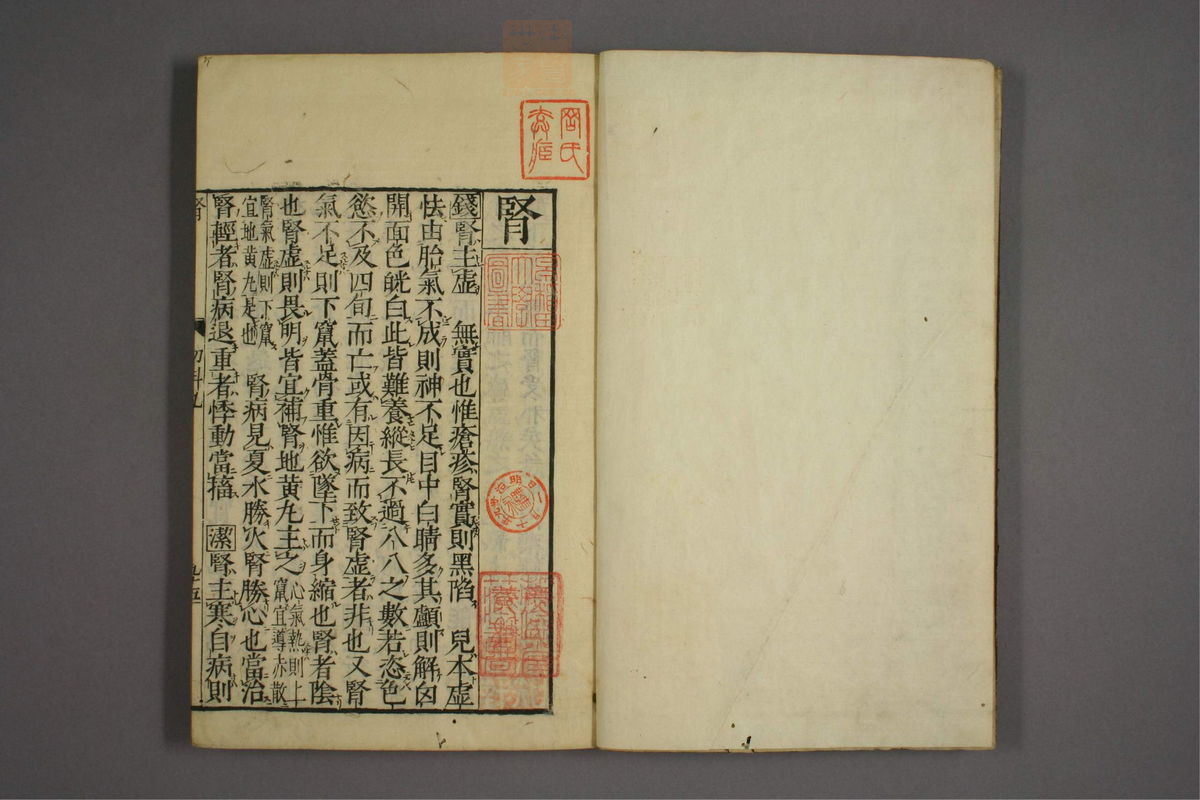 腎
錢腎主虛 無實也惟瘡疹腎實則黑陷 兒本虛
怯由胎氣不成則神不足目中白睛多其顱則解囟
開面色㿠白此皆難養縱長不過八八之數若恣色
慾不及四旬而亡或有因病而致腎虛者非也又腎
氣不足則下竄蓋骨重惟欲墜下而身縮也腎者陰
也腎虛則畏明皆宜補腎地黃丸主之 心氣熱則上竄宜導赤散
腎氣虛則下竄宜地黃丸是也 腎病見夏水勝火腎勝心也當治
腎輕者腎病退重者悸動當搐 潔腎主寒自病則